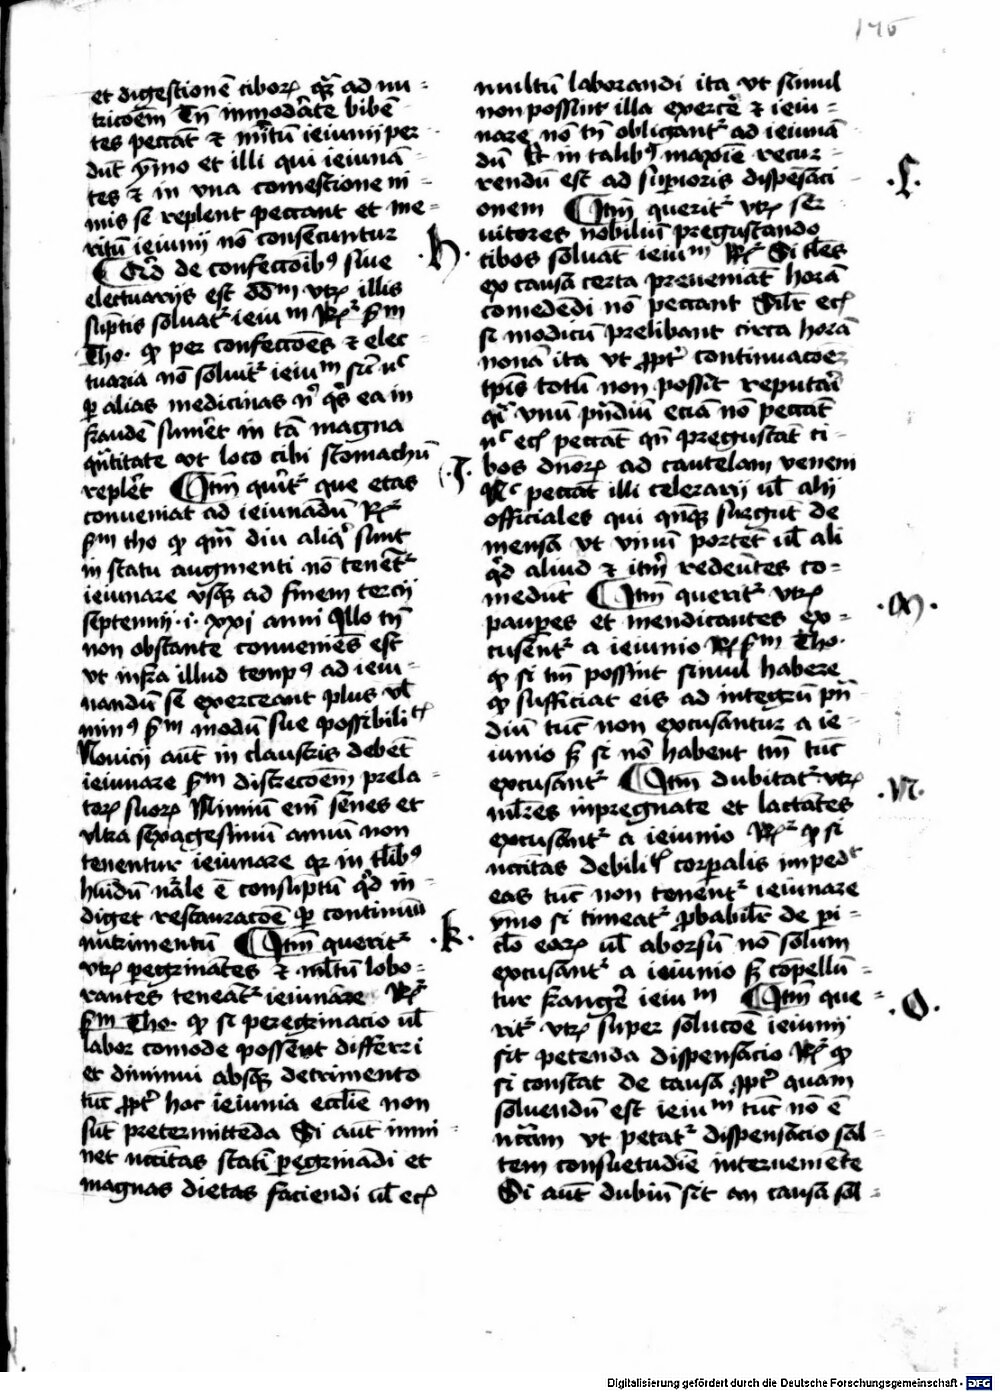 175
et digestionē ciboꝝ qͣ ad nu-
tricoēm Tn̄ inmod̄ate bibē-
tes peccāt ⁊ mītum ieiunii per-
dūt ymo et illi qui ieiunā-
tes ⁊ in vna comestione ni-
mis se replent peccant et me-
ritū ieiunij nō consecuntur
.h.
Sed de confectoībꝰ siue
electuarijs est vtꝝ illis
sūptis soluatᷣ ieiuᵐ Rᷣ ẜm
Tho. ꝙ per confectōēs ⁊ elec-
tuaria nō soluitᷣ ieiuᵐ sic nᶜ
ꝑ alias medicinas nⁱ qͥs ea in
fraudē sumet in tā magna
q̄ntitate vt loco cibi stomachū
.J.
replet Itm̄ querᷣ que etas
conueniat ad ieiunādū Rᷣ
ẜm tho ꝙ qm̄ diu aliqͥ sunt
in statu augmenti nō tenētᷣ
ieiunare vsqꝫ ad finem tercij
septennij .i. xxi anni Illo tn̄
non obstante conueniēs est
vt infra illud tempꝰ ad ieiu-
nandū se exerceant plus vl̄
minꝰ ẜm modū sue possibiliᵗⁱˢ
Nouicij aūt in claustris debēt
ieiunare ẜm discrecoēm prela-
toꝝ suoꝝ Nimiū enī senes et
vltra sexagesimū annū non
tenentur ieiunare qꝛ in tl̄ibꝰ
hūidū nāle ē consūptū qd in-
diget restauracoē ꝑ continuū
.k.
nutrimentū Itm̄ queritᷣ
vtꝝ pegrinātes ⁊ ml̄tum labo-
rantes teneātᷣ ieiunare Rᷣ
ẜm Tho. ꝙ si peregrinacio vl̄
labor comode possent differri
et diminui absqꝫ detrimento
tūc ꝓptᷣ hoc ieiunia ecclīe non
sūt pretermittēda Si aūt immi-
net nccītas statī pegrinādi et
magnas dietas faciendi vl̄ ecᷓ
multū laborandi ita vt simul
non possint illa exerce ⁊ ieiu-
nare nō tn̄ obligantᷣ ad ieiunā
dū Et in talibꝰ maxīe recur-
.l.
rendū est ad supioris dispēsaci-
onem Itm̄ queritᷣ vtꝝ ser
uitores nobiliū pregustando
cibos soluāt ieiuᵐ Rᷣ Si tl̄es
ex causa certa preueniāt horā
comedēdi nō peccant Sil̄r ecᷓ
si modicū prelibant circa horā
nonā ita vt ꝓptᷣ continuacoēꝫ
tp̄is totū non possit reputari
qͥ vnū prādiū eciā nō peccāt
nᶜ ecᷓ peccāt qn̄ pregustāt ci-
bos dn̄oꝝ ad cautelam veneni
Nᶜ peccāt illi celerarij vl̄ alij
officiales qui qn̄qꝫ surgūt de
mensa vt vinū portēt vl̄ ali
qd aliud ⁊ itm̄ redeūtes co-
.m.
medūt Itm̄ queritᷣ vtꝝ
paupes et mendicantes ex-
cusentᷣ a ieiunio Rᷣ ẜm Tho.
ꝙ si tm̄ possint simul habere
ꝙ sufficiat eis ad integrū pn̄
diū tūc non excusantur a ie-
iunio ẜ si nō habent tm̄ tūc
.n.
excusantᷣ Itm̄ dubitatᷣ vtꝝ
ml̄res inpregnate et lactātes
excusantᷣ a ieiunio Rᷣ ꝙ si
nccītas debiliᵗⁱˢ corꝑalis impedᵗ
eas tūc non tenentᷣ ieiunare
ymo si timeatᷣ ꝓbabilr̄ de pi-
clo eaꝝ vl̄ aborsū nō solum
excusantᷣ a ieiunio ẜ cōpellū-
.o.
tur frange ieiuᵐ Itm̄ que-
ritᷣ vtꝝ super solucoē ieiunij
sit petenda dispensacio Rᷣ ꝙ
si constat de causa ꝓptᷣ quam
soluendū est ieiuᵐ tūc nō ē
nc̄cm vt petatᷣ dispensacio sal-
tem consuetudīe interueniēte
Si aūt dubiū sit an causa sol-
Digitalisierung gefördert durch die Deutsche Forschungsgemeinschaft - DFG